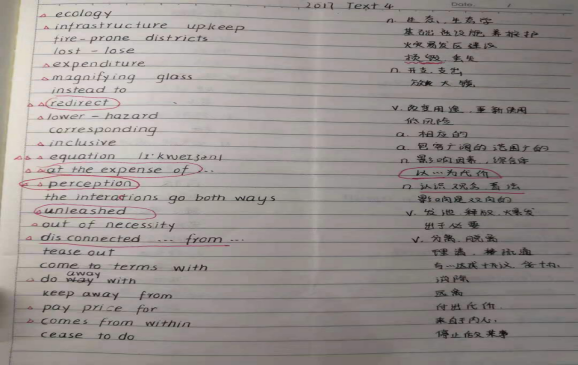 2017 Text 4 Date: /
ecology n. 生态, 生态学
infrastructure upkeep 基础设施 养护
fire-prone districts 火灾易发区
lost - lose 丢失
expenditure n. 开支, 支出
magnifying glass 放大镜
instead to
redirect v. 改变用途, 重新使用
lower - hazard 低风险
corresponding a. 相应的
inclusive a. 包含广阔的 范围广的
equation n. 影响因素,
at the expense of ... 以…为代价
perception n. 认识 观念 看法
the interactions go both ways 影响是双向的
unleashed v. 发泄 释放
out of necessity 出于必要
disconnected ... from ... v. 分离, 脱离
tease out
come to terms with
do way away with 消除
keep away from 远离
pay price for 付出代价
comes from within 来自于内心,
cease to do 停止做某事